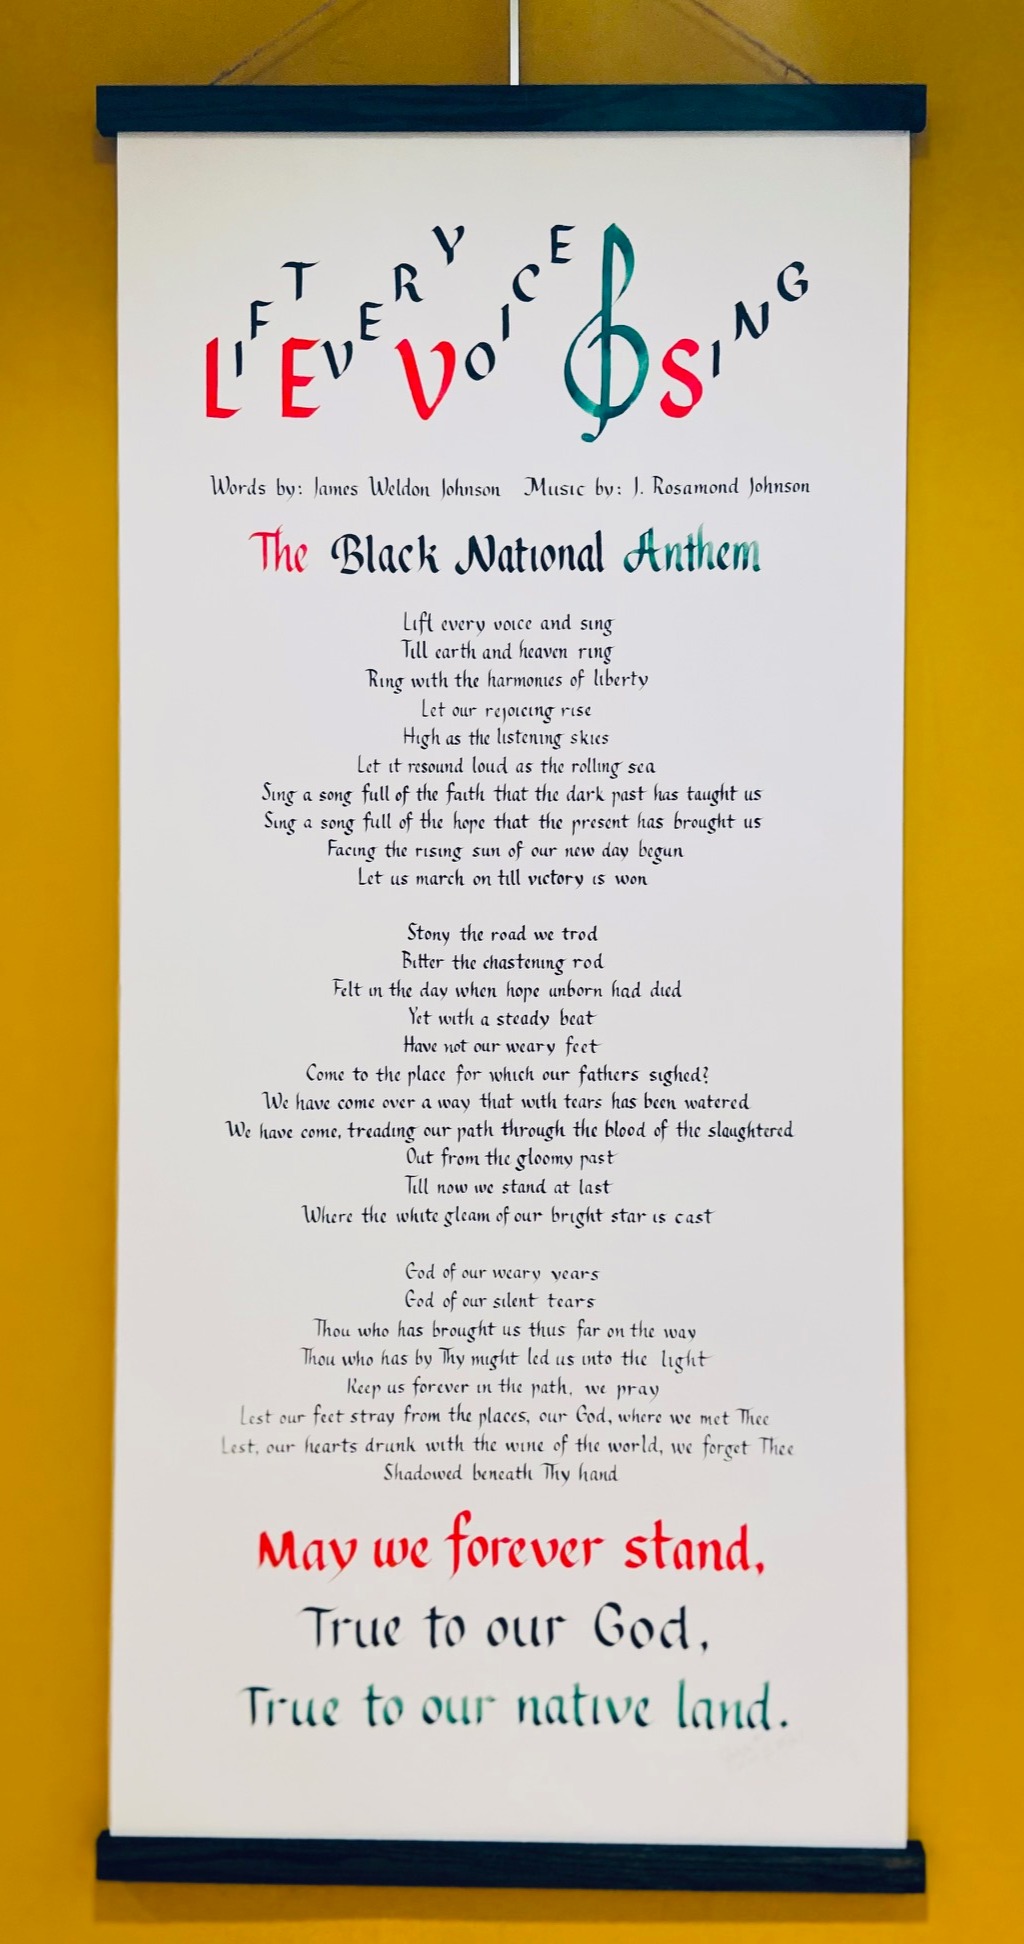 LIFT EVERY VOICE & SING
Words by: James Weldon Johnson Music by: J. Rosamond Johnson
The Black National Anthem
Lift every voice and sing
Till earth and heaven ring
Ring with the harmonies of liberty
Let our rejoicing rise
High as the listening skies
Let it resound loud as the rolling sea
Sing a song full of the faith that the dark past has taught us
Sing a song full of the hope that the present has brought us
Facing the rising sun of our new day begun
Let us march on till victory is won
Stony the road we trod
Bitter the chastening rod
Felt in the day when hope unborn had died
Yet with a steady beat
Have not our weary feet
Come to the place for which our fathers sighed?
We have come over a way that with tears has been watered
We have come, treading our path through the blood of the slaughtered
Out from the gloomy past
Till now we stand at last
Where the white gleam of our bright star is cast
God of our weary years
God of our silent tears
Thou who has brought us thus far on the way
Thou who has by Thy might led us into the light
Keep us forever in the path, we pray
Lest our feet stray from the places, our God, where we met Thee
Lest, our hearts drunk with the wine of the world, we forget Thee
Shadowed beneath Thy hand
May we forever stand,
True to our God,
True to our native land.